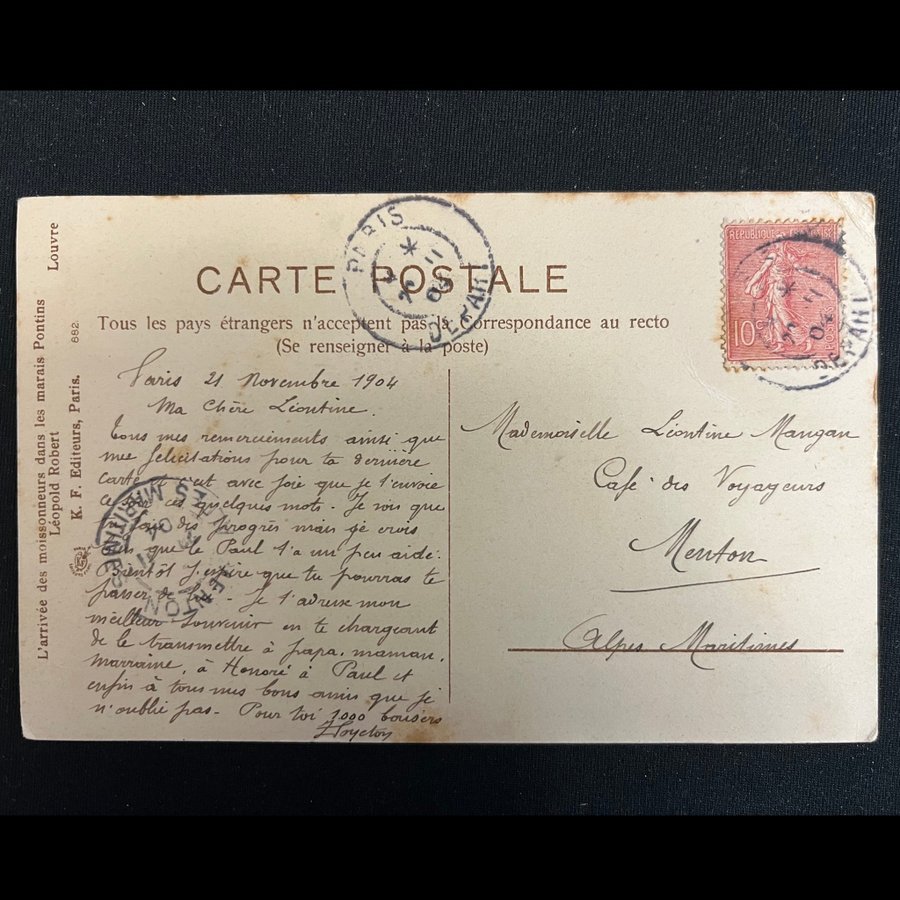 CARTE POSTALE
Tous les pays étrangers n'acceptent pas la Correspondance au recto
(Se renseigner à la poste)
L'arrivée des moissonneurs dans les marais Pontins
Léopold Robert
Louvre
882.
K. F. Editeurs, Paris.
PARIS
11
04
DEPART
REPUBLIQUE FRANÇAISE
10c
04
DEPART
Paris 21 Novembre 1904
Ma Chère Léontine.
Tous mes remerciements ainsi que
mes felicitations pour ta dernière
carte et c'est avec joie que je t'envoie
ces quelques mots. Je vois que
des progrès mais je crois
que le Paul t'a un peu aidé.
Bientôt J'espère que tu pourras te
passer de lui. Je t'adresse mon
meilleur Souvenir en te chargeant
de le transmettre à papa, maman,
marraine, à Honoré à Paul et
enfin à tous mes bons amis que je
n'oublie pas. Pour toi 1000 baisers
MENTON
11
04
ALPES MARITIMES
Mademoiselle Léontine Mangan
Café des Voyageurs
Menton
Alpes Maritimes